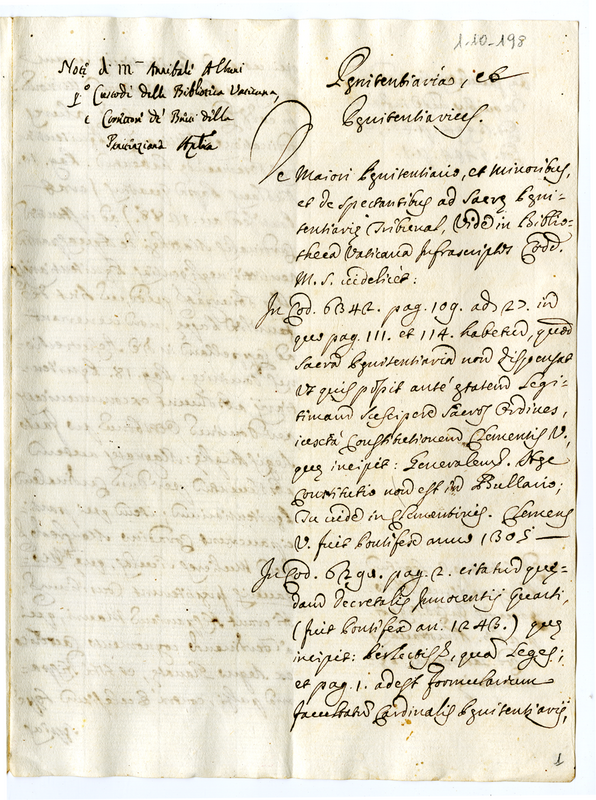 1-10-198
Not.e di m.r Annibale Albani
1.o Custode della Biblioteca Vaticana,
e Canonico de' Brevi della
Penitenziaria
Pęnitentiarias, et
Pęnitentiarios.
De Maiori Pęnitentiario, et minoribus,
et de spectantibus ad Sacrę Pęni-
tentiarię Tribunal, Vide in Biblio-
theca Vaticana Infrascriptos Codd.
M. S. videlicet:
In Cod. 6342. pag. 109. ad 27. in
quo pag. 111. et 114. habetur, quod
Sacra Pęnitentiaria non dispensat
ut quis possit ante ętatem Legi-
timam suscipere Sacros Ordines,
iuxta Constitutionem Clementis V.
quę incipit: Generalem. Atque
Constitutio non est in Bullario;
Tu vide in Clementinis. Clemens
V. fuit Pontifex anno 1305 —
In Cod. 6290. pag. 2. citatur quę-
dam Decretalis Innocentij Quarti,
(fuit Pontifex an. 1243.) quę
incipit: perlectis, quam Leges;
et pag. 1. adest formularium
facultatum Cardinalis Pęnitentiarij,
1